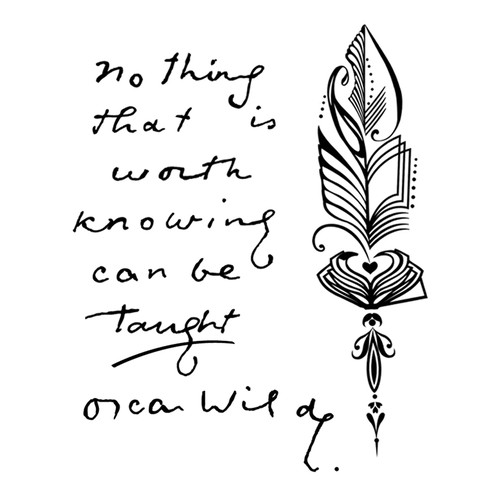 nothing
that is
worth
knowing
can be
taught
Oscar Wilde.